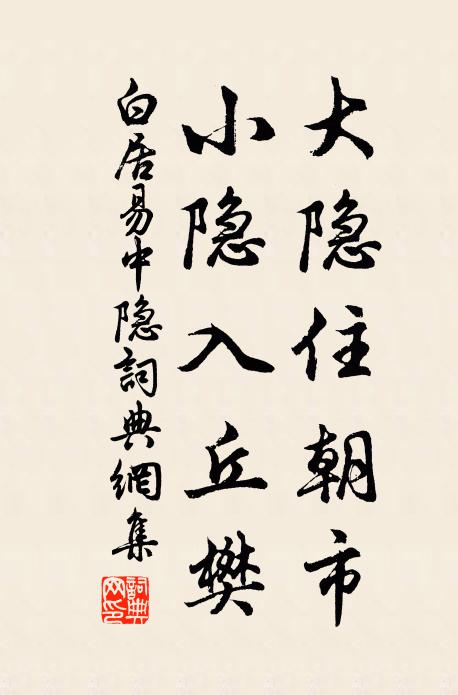 大隐住朝市
小隐入丘樊
白居易中隐詞典網集
詞典网印